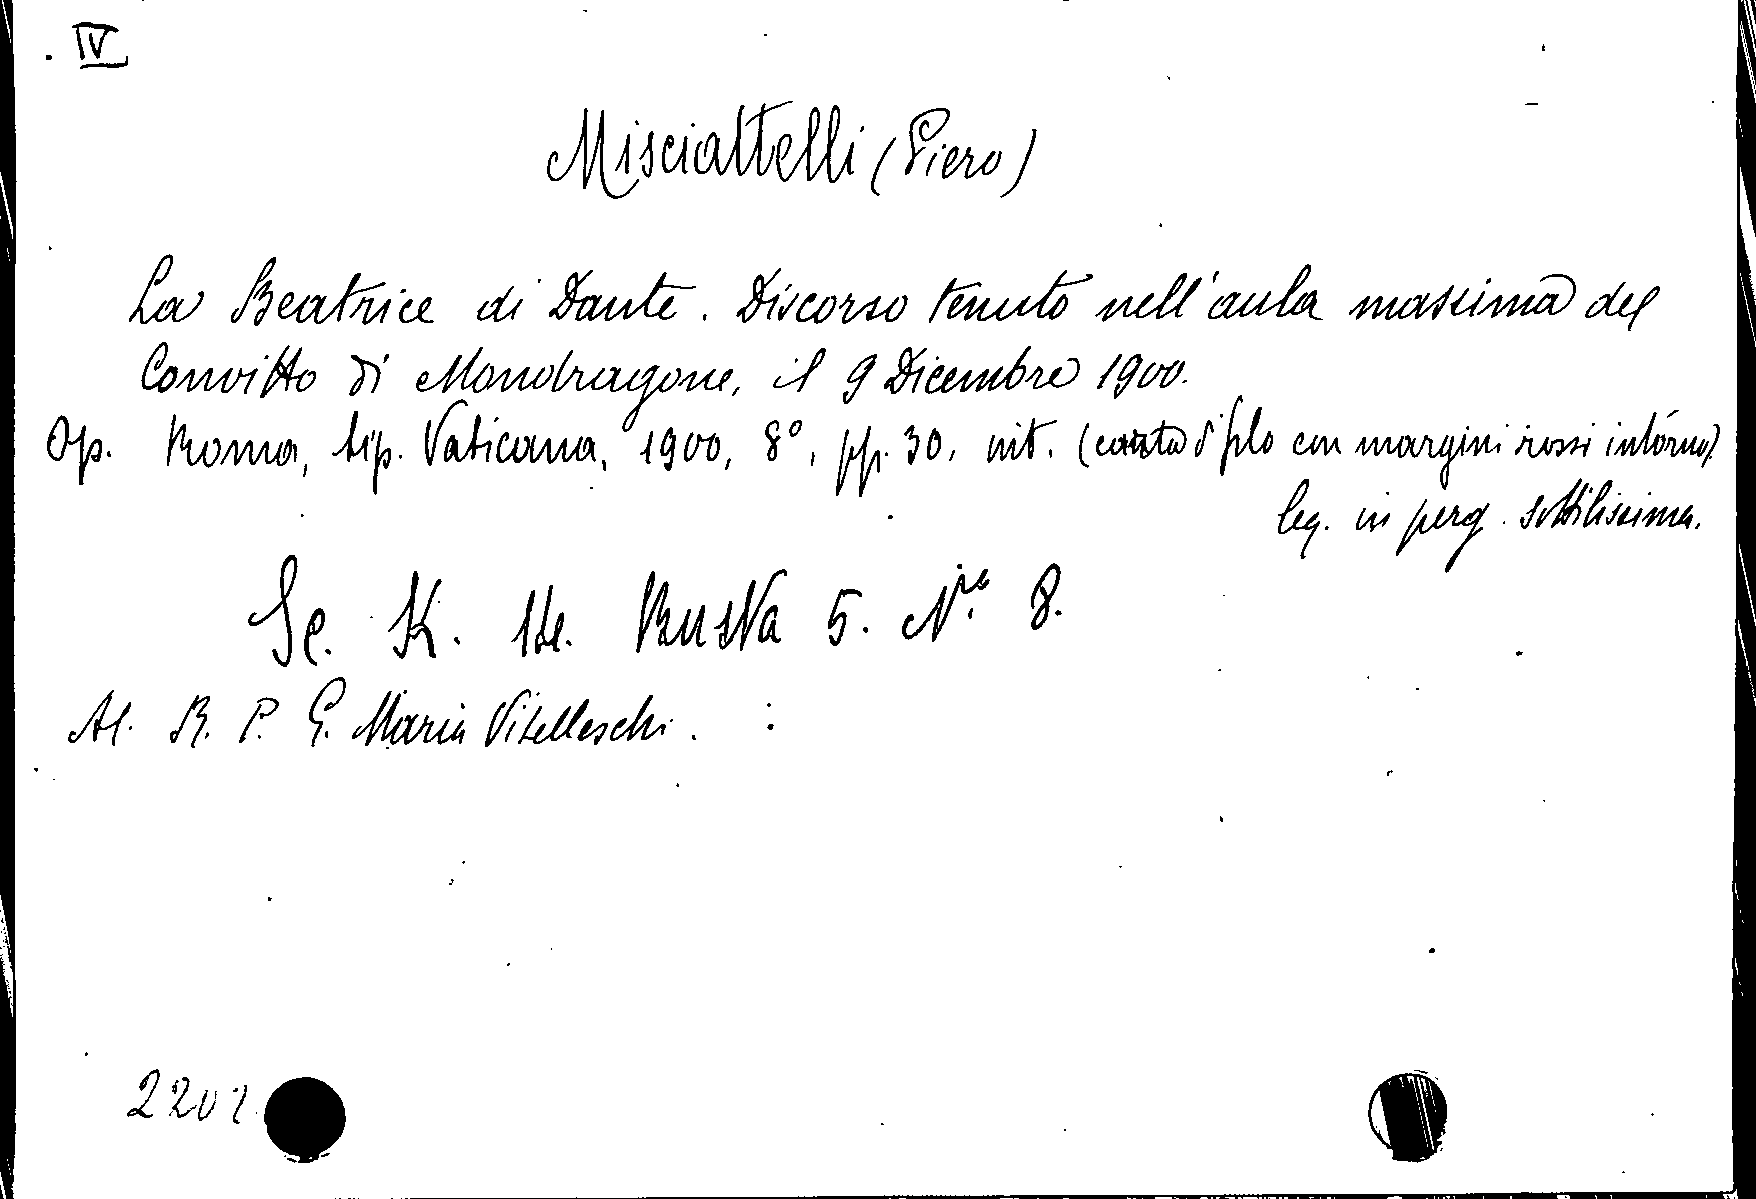 IV
Misciattelli (Piero)
La Beatrice di Dante. Discorso tenuto nell'aula massima del
Convitto di Mondragone, il 9 Dicembre 1900.
Op. Roma, tip. Vaticana, 1900, 8°, pp. 30, nit. (carta d filo con margini rossi intorno)
leg. in perg. sottilissima.
Sc. K. Busta 5. N.ro 8.
Al. R. P. G. Maria Vitelleschi.